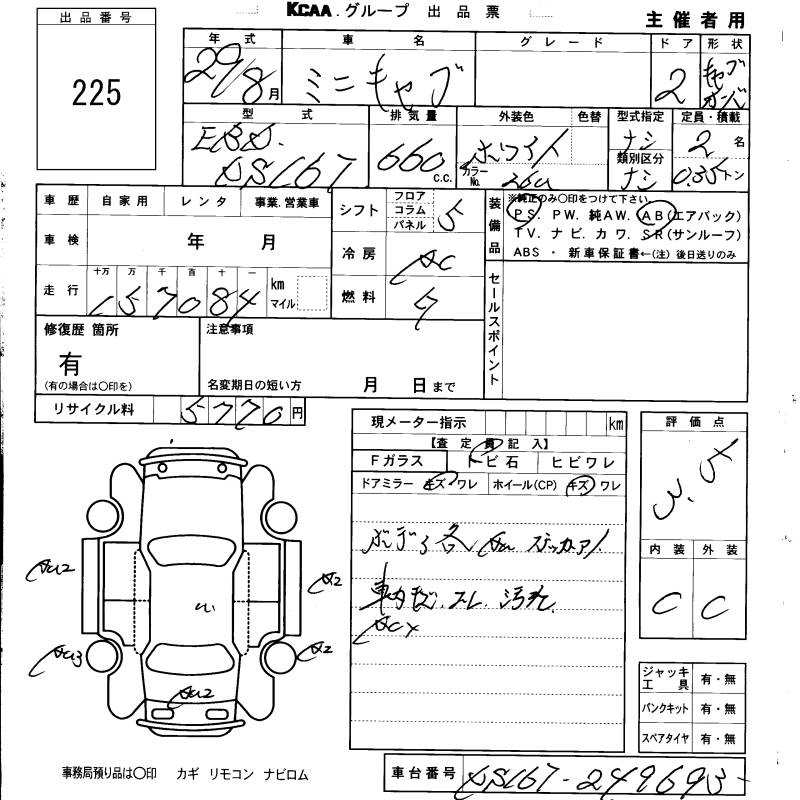 KCAA.グループ 出品票
主催者用
出品番号
225
年式 車名 グレード ドア 形状
29/8月 ミニキャブ 2 キャブオーバ
型式 排気量 外装色 色替 型式指定 定員・積載
EBD. DS16T 660c.c. ホワイト カラーNo. 26U ナシ 2名
類別区分
ナシ 0.35トン
車歴 自家用 レンタ 事業.営業車
シフト フロア コラム パネル 5
装備品 ※純正のみ〇印をつけて下さい。
PS. PW. 純AW. AB(エアバック)
TV. ナビ. カワ. SR(サンルーフ)
ABS ・ 新車保証書←(注) 後日送りのみ
車検 年 月
冷房 AC
走行 十万 万 千 百 十 一
157084 km マイル
燃料 ガ
セールスポイント
修復歴 箇所
有
(有の場合は〇印を)
注意事項
名変期日の短い方 月 日まで
リサイクル料 5770円
現メーター指示 km
【査定員記入】
Fガラス トビ石 ヒビワレ
ドアミラー キズ ワレ ホイール(CP) キズ ワレ
ボデー各 AU ステッカーアト
車内キズ.スレ.汚れ
ACX
評価点
3.5
内装 外装
C C
AU2
A2
AU3
A2
AU2
ジャッキ工具 有・無
パンクキット 有・無
スペアタイヤ 有・無
事務局預り品は〇印 カギ リモコン ナビロム
車台番号